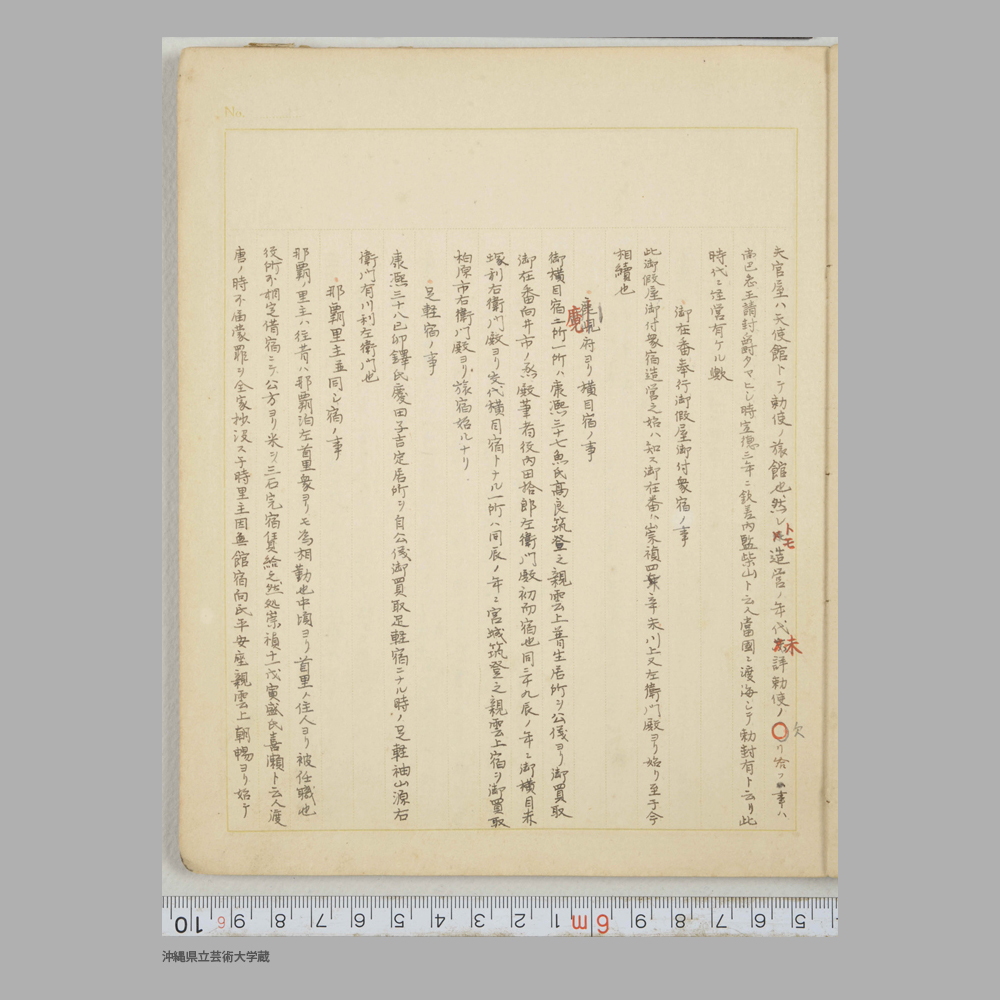 天官屋ハ天使館トテ勅使ノ旅館也然レトモ造営ノ年代未詳勅使ノ〇リ給フ事ハ
欠
尚巴志王請封爵タマヒシ時宣徳三年ニ欽差内監柴山ト云人當國ニ渡海シテ勅封有ト云リ此
時代ニ経営有ケル歟
御在番奉行御假屋御付衆宿ノ事
此御假屋御付衆宿造営之始ハ知ス御在番ハ崇禎四年辛未川上又左衛門殿ヨリ始リ至于今
相續也
鹿児府ヨリ横目宿ノ事
御横目宿二所一所ハ康熙三十七魚氏高良筑登之親雲上普生居所ヲ公儀ヨリ御買取
御在番向井市ノ烝殿筆者役内田拾郎左衛門殿初而宿也同三十九辰ノ年ニ御横目赤
塚利右衛門殿ヨリ交代横目宿トナル一所ハ同辰ノ年ニ宮城筑登之親雲上宿ヲ御買取
柏原市右衛門殿ヨリ旅宿始ルナリ
足軽宿ノ事
康熙三十八己卯鐸氏慶田子吉定居所ヲ自公儀御買取足軽宿ニナル時ノ足軽袖山源右
衛門有川利左衛門也
那覇里主並同シ宿ノ事
那覇ノ里主ハ往昔ハ那覇泊左首里衆ヨリモ為相勤也中頃ヨリ首里ノ住人ヨリ被任職也
役所不相定借宿ニテ公方ヨリ米ヲ三石完宿賃給之然処崇禎十一戊寅盛氏喜瀬ト云人渡
唐ノ時不届蒙罪シ全家抄没ス于時里主因無館宿向氏平安座親雲上朝暢ヨリ始テ
No.
沖縄県立芸術大学蔵
10 9 8 7 6 5 4 3 2 1 6m 9 8 7 6 5